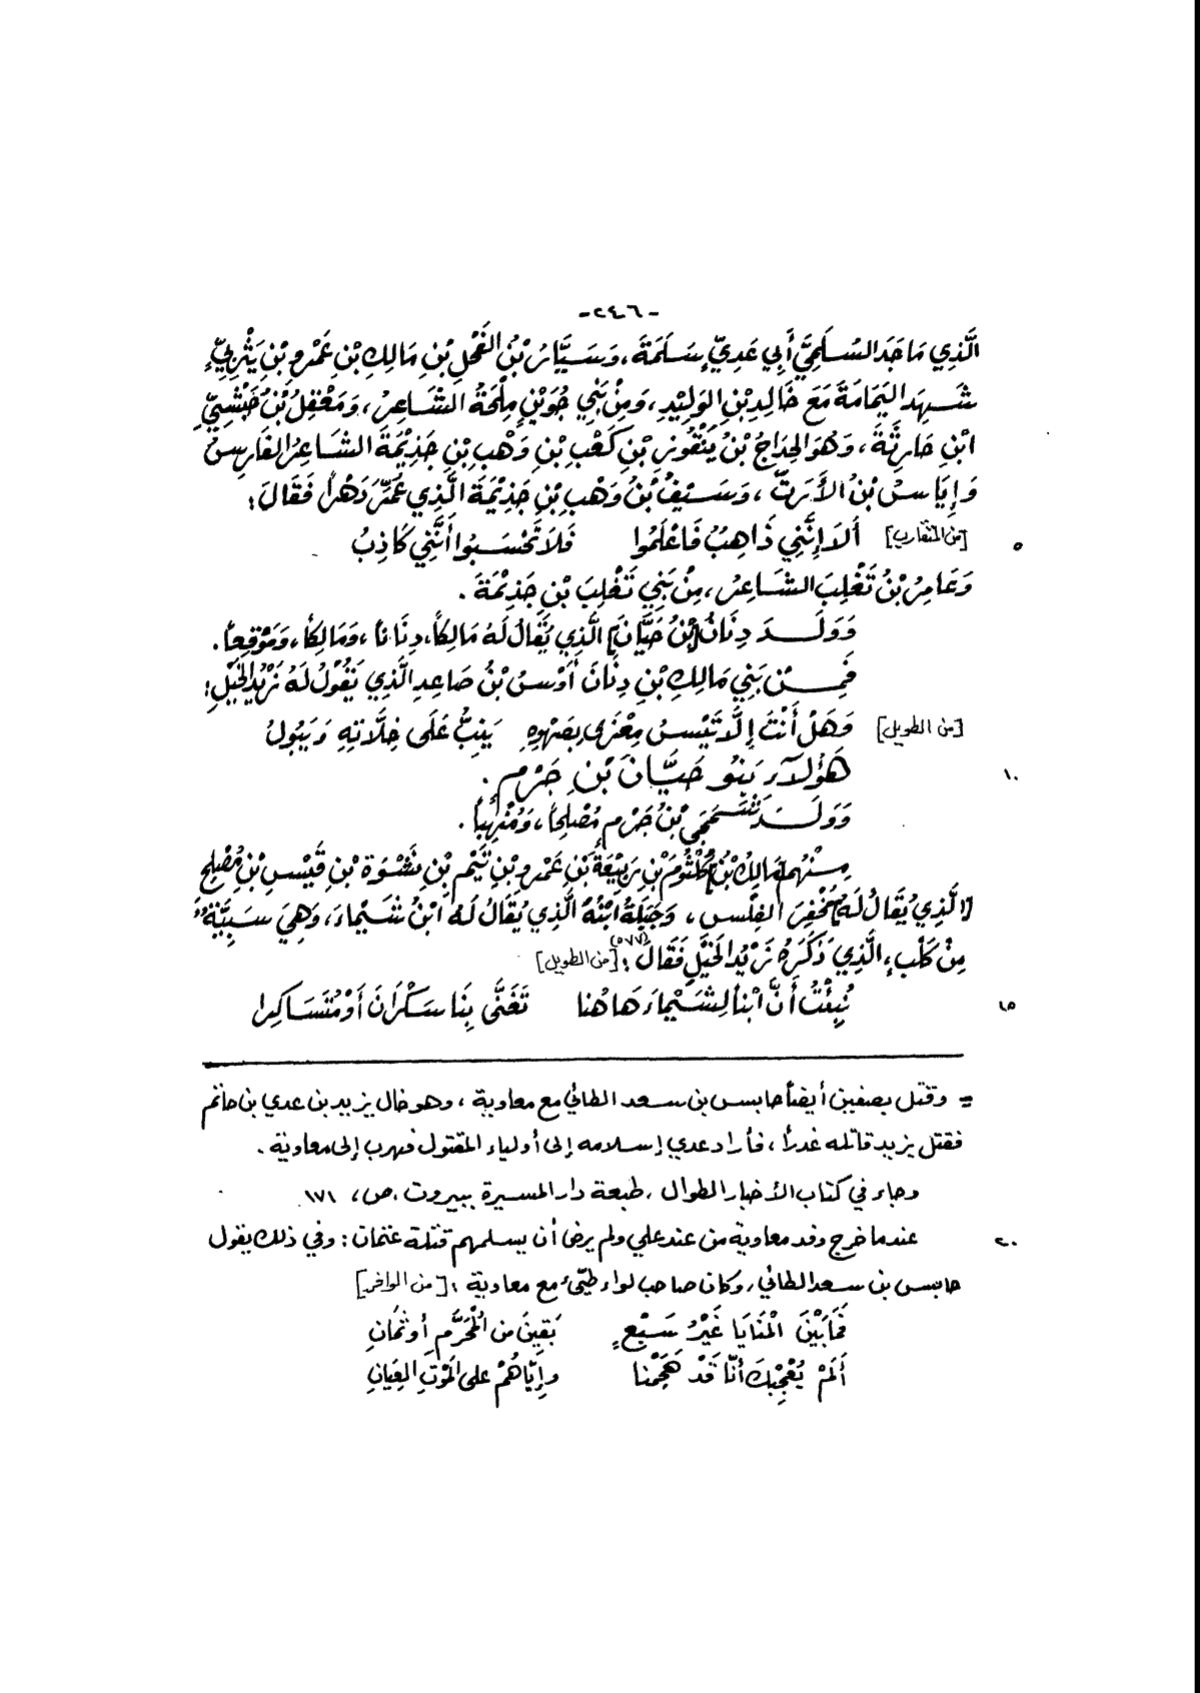 -٢٤٦-
الَّذِي مَاجَدَ السُّلَمِيَّ أَبِي عَدِيِّ سَلَمَةَ، وَسَيَّارُ بْنُ الفَحْلِ بْنِ مَالِكِ بْنِ عَمْرِو بْنِ يَثْرِبِيٍّ،
شَهِدَ اليَمَامَةَ مَعَ خَالِدِ بْنِ الوَلِيْدِ، وَمِنْ بَنِي جُوَيْنٍ مِلْحَةُ الشَّاعِرُ، وَمَعْقِلُ بْنُ حَبَشِيِّ
ابْنِ حَارِثَةَ، وَهُوَ الحِدَاجُ بْنُ يَنْقُونِ بْنِ كَعْبِ بْنِ وَهْبِ بْنِ جَذِيْمَةَ الشَّاعِرُ الفَارِسُ
وَإِيَاسُ بْنُ الأَرَتِّ، وَسَيْفُ بْنُ وَهْبِ بْنِ جَذِيْمَةَ الَّذِي عُمِّرَ دَهْراً فَقَالَ:
٥ [من المتقارب] أَلاَ إِنَّنِي ذَاهِبٌ فَاعْلَمُوا فَلاَ تَحْسَبُوا أَنَّنِي كَاذِبُ
وَعَامِرُ بْنُ تَغْلِبَ الشَّاعِرُ، مِنْ بَنِي تَغْلِبَ بْنِ جَذِيْمَةَ.
وَوَلَدَ دِنَانُ [بْنُ حَيَّانَ] الَّذِي يُقَالُ لَهُ مَالِكاً، دِنَانا، وَمَالِكاً، وَمَوْقِعاً.
فَمِنْ بَنِي مَالِكِ بْنِ دِنَانَ أَوْسُ بْنُ صَاعِدِ الَّذِي يَقُوْلُ لَهُ زَيْدُ الخَيْلِ:
[من الطويل] وَهَلْ أَنْتَ إِلاَّ تَيْسُ مِعْزَى بِصَهْوَةٍ يَنِبُّ عَلَى خِلَّاتِهِ وَيَبُولُ
١٠ هَؤُلاَءِ بَنُو حَيَّانَ بْنِ جَرْمٍ.
وَوَلَدَ شَمَجَى بْنُ جَرْمٍ مُصْلِحاً، وَمُنْهِباً.
مِنْهُم مَالِكُ بْنُ كُلْثُومِ بْنِ رَبِيْعَةَ بْنِ عَمْرِو بْنِ تَيْمِ بْنِ نَشْوَةَ بْنِ قَيْسِ بْنِ مُصْلِحِ
[الَّذِي يُقَالُ لَهُ] مُخْفِرَ الفِلْسِ، وَجَبَلَةُ ابْنُهُ الَّذِي يُقَالُ لَهُ ابْنُ شَيْمَاءَ، وَهِيَ سَبِيَّةٌ
مِنْ كَلْبٍ، الَّذِي ذَكَرَهُ زَيْدُ الخَيْلِ فَقَالَ:(٥٧٧) [من الطويل]
١٥ نُبِئْتُ أَنَّ ابْناً لِشَيْمَاءَ هَا هُنَا تَغَنَّى بِنَا سَكْرَانَ أَوْ مُتَسَاكِرا
= وقتل بصفين أيضاً حابس بن سعد الطائي مع معاوية، وهو خال يزيد بن عدي بن حاتم
فقتل يزيد قاتله غدراً، فأراد عدي إسلامه إلى أولياء المقتول فهرب إلى معاوية.
وجاء في كتاب الأخبار الطوال، طبعة دار المسيرة ببيروت، ص، ١٧١
٢٠ عندما خرج وفد معاوية من عند علي ولم يرض أن يسلمهم قتلة عثمان: وفي ذلك يقول
حابس بن سعد الطائي، وكان صاحب لواء طيّئ مع معاوية: [من الوافر]
فَمَا بَيْنَ الْمَنَايَا غَيْرُ سَبْعٍ بَقِينَ من الْمُحَرَّمِ أو ثَمَانِ
أَلَمْ يُعْجِبْكَ أنّا قَدْ هَجَمْنا وإيّاهُمْ على الْمَوْتِ العِيَانِ